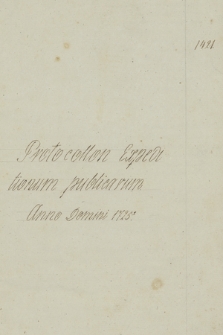 1491
Protocollon Expedi
tionum publicarum
Anno Domini 1725